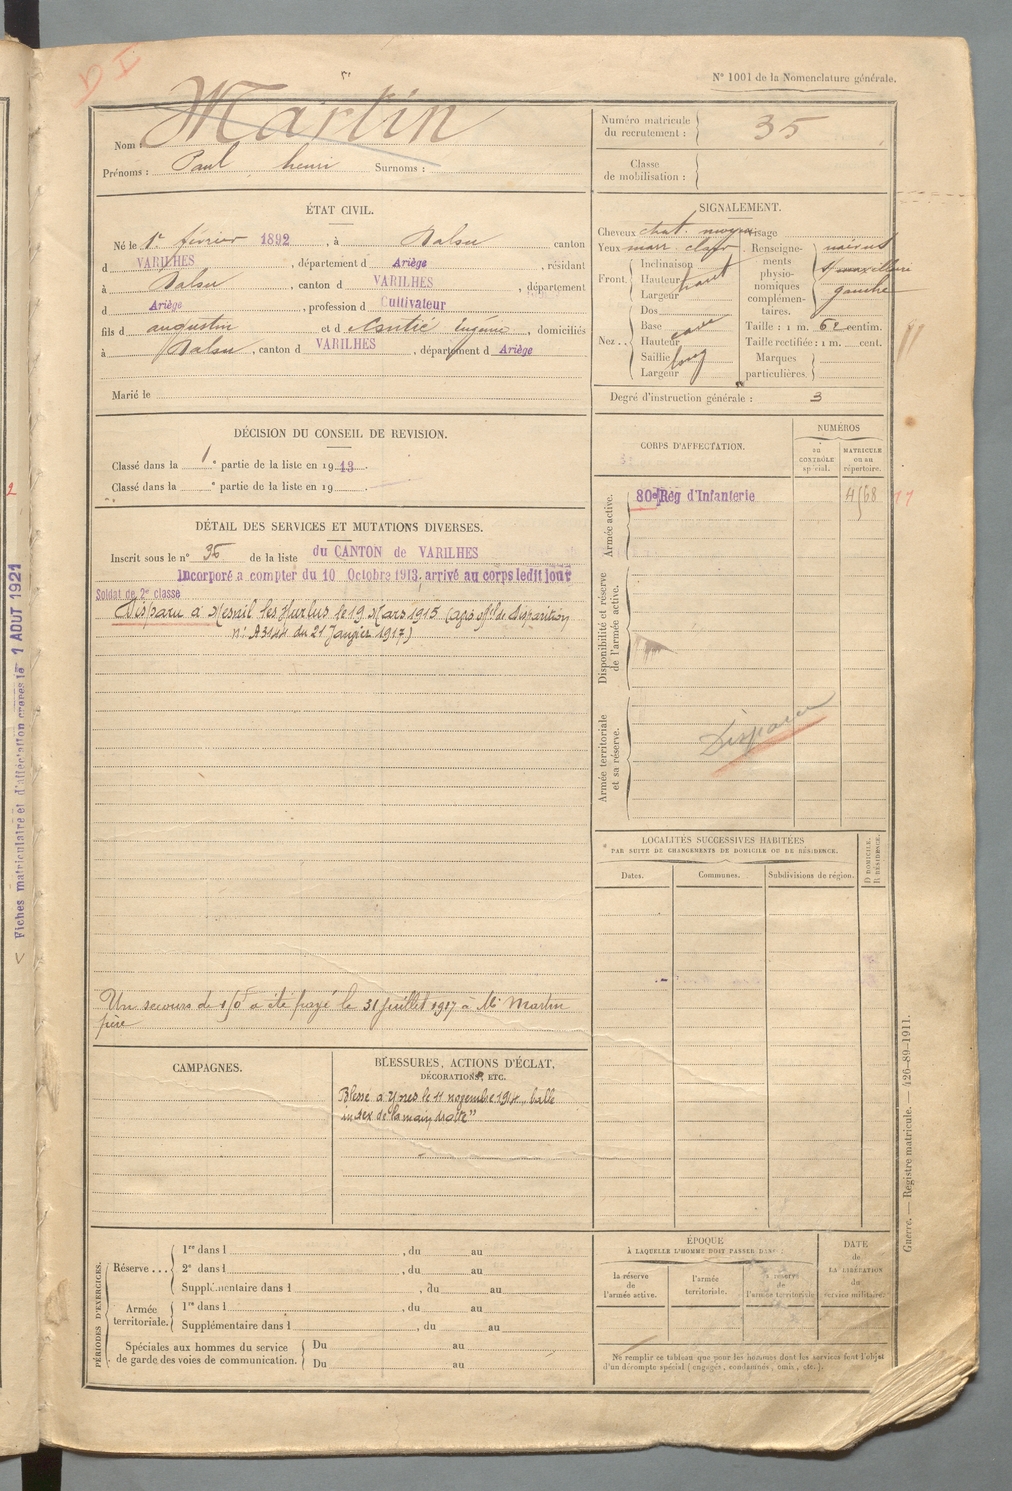 D I
N° 1001 de la Nomenclature générale.
Nom : Martin
Prénoms : Paul henri Surnoms :
Numéro matricule du recrutement : 35
Classe de mobilisation :
ÉTAT CIVIL.
Né le 1er février 1892, à Dalou canton
d VARILHES, département d Ariège, résidant
à Dalou, canton d VARILHES, département
d Ariège, profession d Cultivateur
fils d augustin et d Eugénie, domiciliés
à Dalou, canton d VARILHES, département d Ariège
Marié le
SIGNALEMENT.
Cheveux chat. moyen Visage
Yeux marr. clair
Front
Inclinaison
Hauteur haut
Largeur
Nez..
Dos
Base cave
Hauteur
Saillie long
Largeur
Renseignements physionomiques complémentaires.
gauche
Taille : 1 m. 62 centim.
Taille rectifiée : 1 m. cent.
Marques particulières.
Degré d'instruction générale : 3
DÉCISION DU CONSEIL DE REVISION.
Classé dans la 1e partie de la liste en 1913.
Classé dans la e partie de la liste en 19
CORPS D'AFFECTATION.
NUMÉROS
au CONTRÔLE spécial.
MATRICULE ou au répertoire.
Armée active.
80e Rég d'Infanterie
68
Disponibilité et réserve de l'armée active.
Armée territoriale et sa réserve.
Disparu
DÉTAIL DES SERVICES ET MUTATIONS DIVERSES.
Inscrit sous le n° 35 de la liste du CANTON de VARILHES
Incorporé a compter du 10 Octobre 1913, arrivé au corps ledit jour
Soldat de 2e classe
Disparu à Mesnil les Hurlus le 19 Mars 1915 (avis offel de disparition
n° B3144 du 21 Janvier 1917)
Un secours de 150f a été payé le 31 juillet 1917 à Mr Martin
père
CAMPAGNES.
BLESSURES, ACTIONS D'ÉCLAT,
DÉCORATIONS, ETC.
Blessé à Ypres le 11 novembre 1914 „ balle
index de la main droite"
LOCALITÉS SUCCESSIVES HABITÉES
PAR SUITE DE CHANGEMENTS DE DOMICILE OU DE RÉSIDENCE.
Dates.
Communes.
Subdivisions de région.
D DOMICILE.
R RÉSIDENCE.
PÉRIODES D'EXERCICES.
Réserve...
1re dans l , du au
2e dans l , du au
Supplémentaire dans l , du au
Armée territoriale.
1re dans l , du au
Supplémentaire dans l , du au
Spéciales aux hommes du service de garde des voies de communication.
Du au
Du au
ÉPOQUE
À LAQUELLE L'HOMME DOIT PASSER DANS :
la réserve de l'armée active.
l'armée territoriale.
la réserve de l'armée territoriale
DATE de LA LIBÉRATION du service militaire.
Ne remplir ce tableau que pour les hommes dont les services font l'objet
d'un décompte spécial (engagés, condamnés, omis, etc.).
Guerre. — Registre matricule. — 426-89-1911.
Fiches matriculaire et d'affectation créées le 1 AOUT 1921